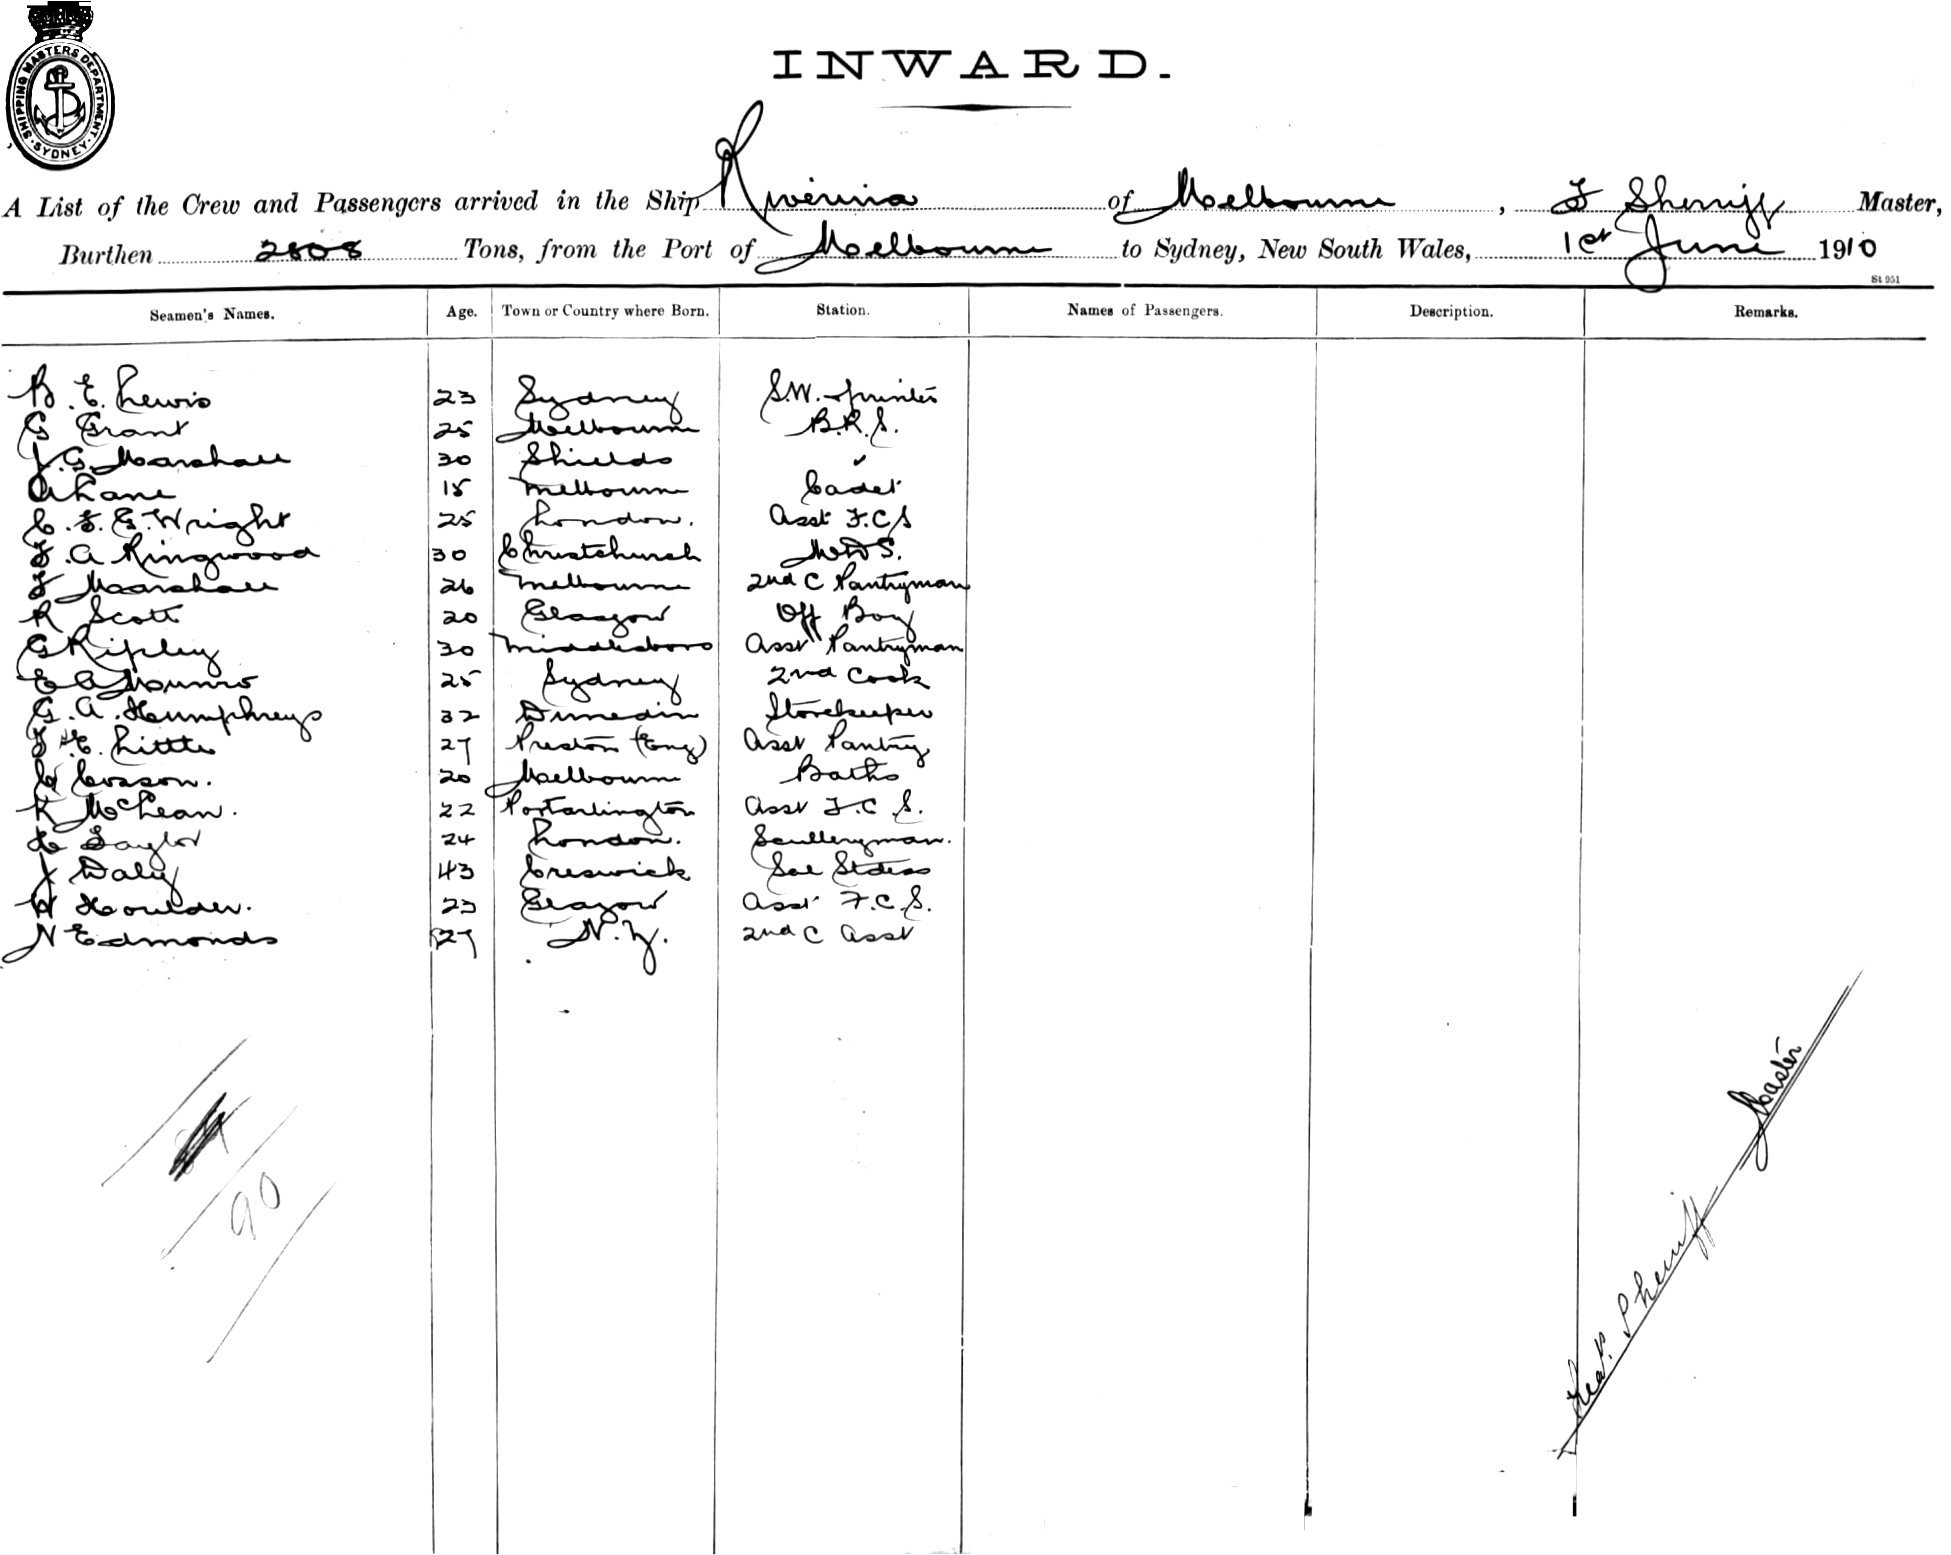 SHIPPING MASTERS DEPARTMENT. SYDNEY
INWARD.
A List of the Crew and Passengers arrived in the Ship Riverina of Melbourne, F Sherriff Master,
Burthen 2808 Tons, from the Port of Melbourne to Sydney, New South Wales, 1st June 1910
St 951
Seamen's Names. Age. Town or Country where Born. Station. Names of Passengers. Description. Remarks.
B. E. Lewis 23 Sydney S.W. Printer
G Grant 25 Melbourne B.R.S.
J. G. Marshall 30 Shields
A Lane 15 Melbourne Cadet
C. F. G. Wright 25 London. Asst F.C.S
F. A Ringwood 30 Christchurch
F Marshall 26 Melbourne 2nd C Pantryman
R Scott 20 Glasgow Off Boy
G Ripley 30 Middlesboro Asst Pantryman
E A Munro 25 Sydney 2nd Cook
G. A. Humphreys 32 Dunedin Storekeeper
F H E. Little 27 Preston (Eng) Asst Pantry
Cosson. 20 Melbourne Baths
K McLean. 22 Portarlington Asst F.C.S.
H Taylor 24 London. Sculleryman.
J Daly 43 Creswick Sal Stdess
H Houlder. 23 Glasgow Asst F.C.S.
N Edmonds 27 N.Z. 2nd C Asst
90
Fredk. Sherriff Master